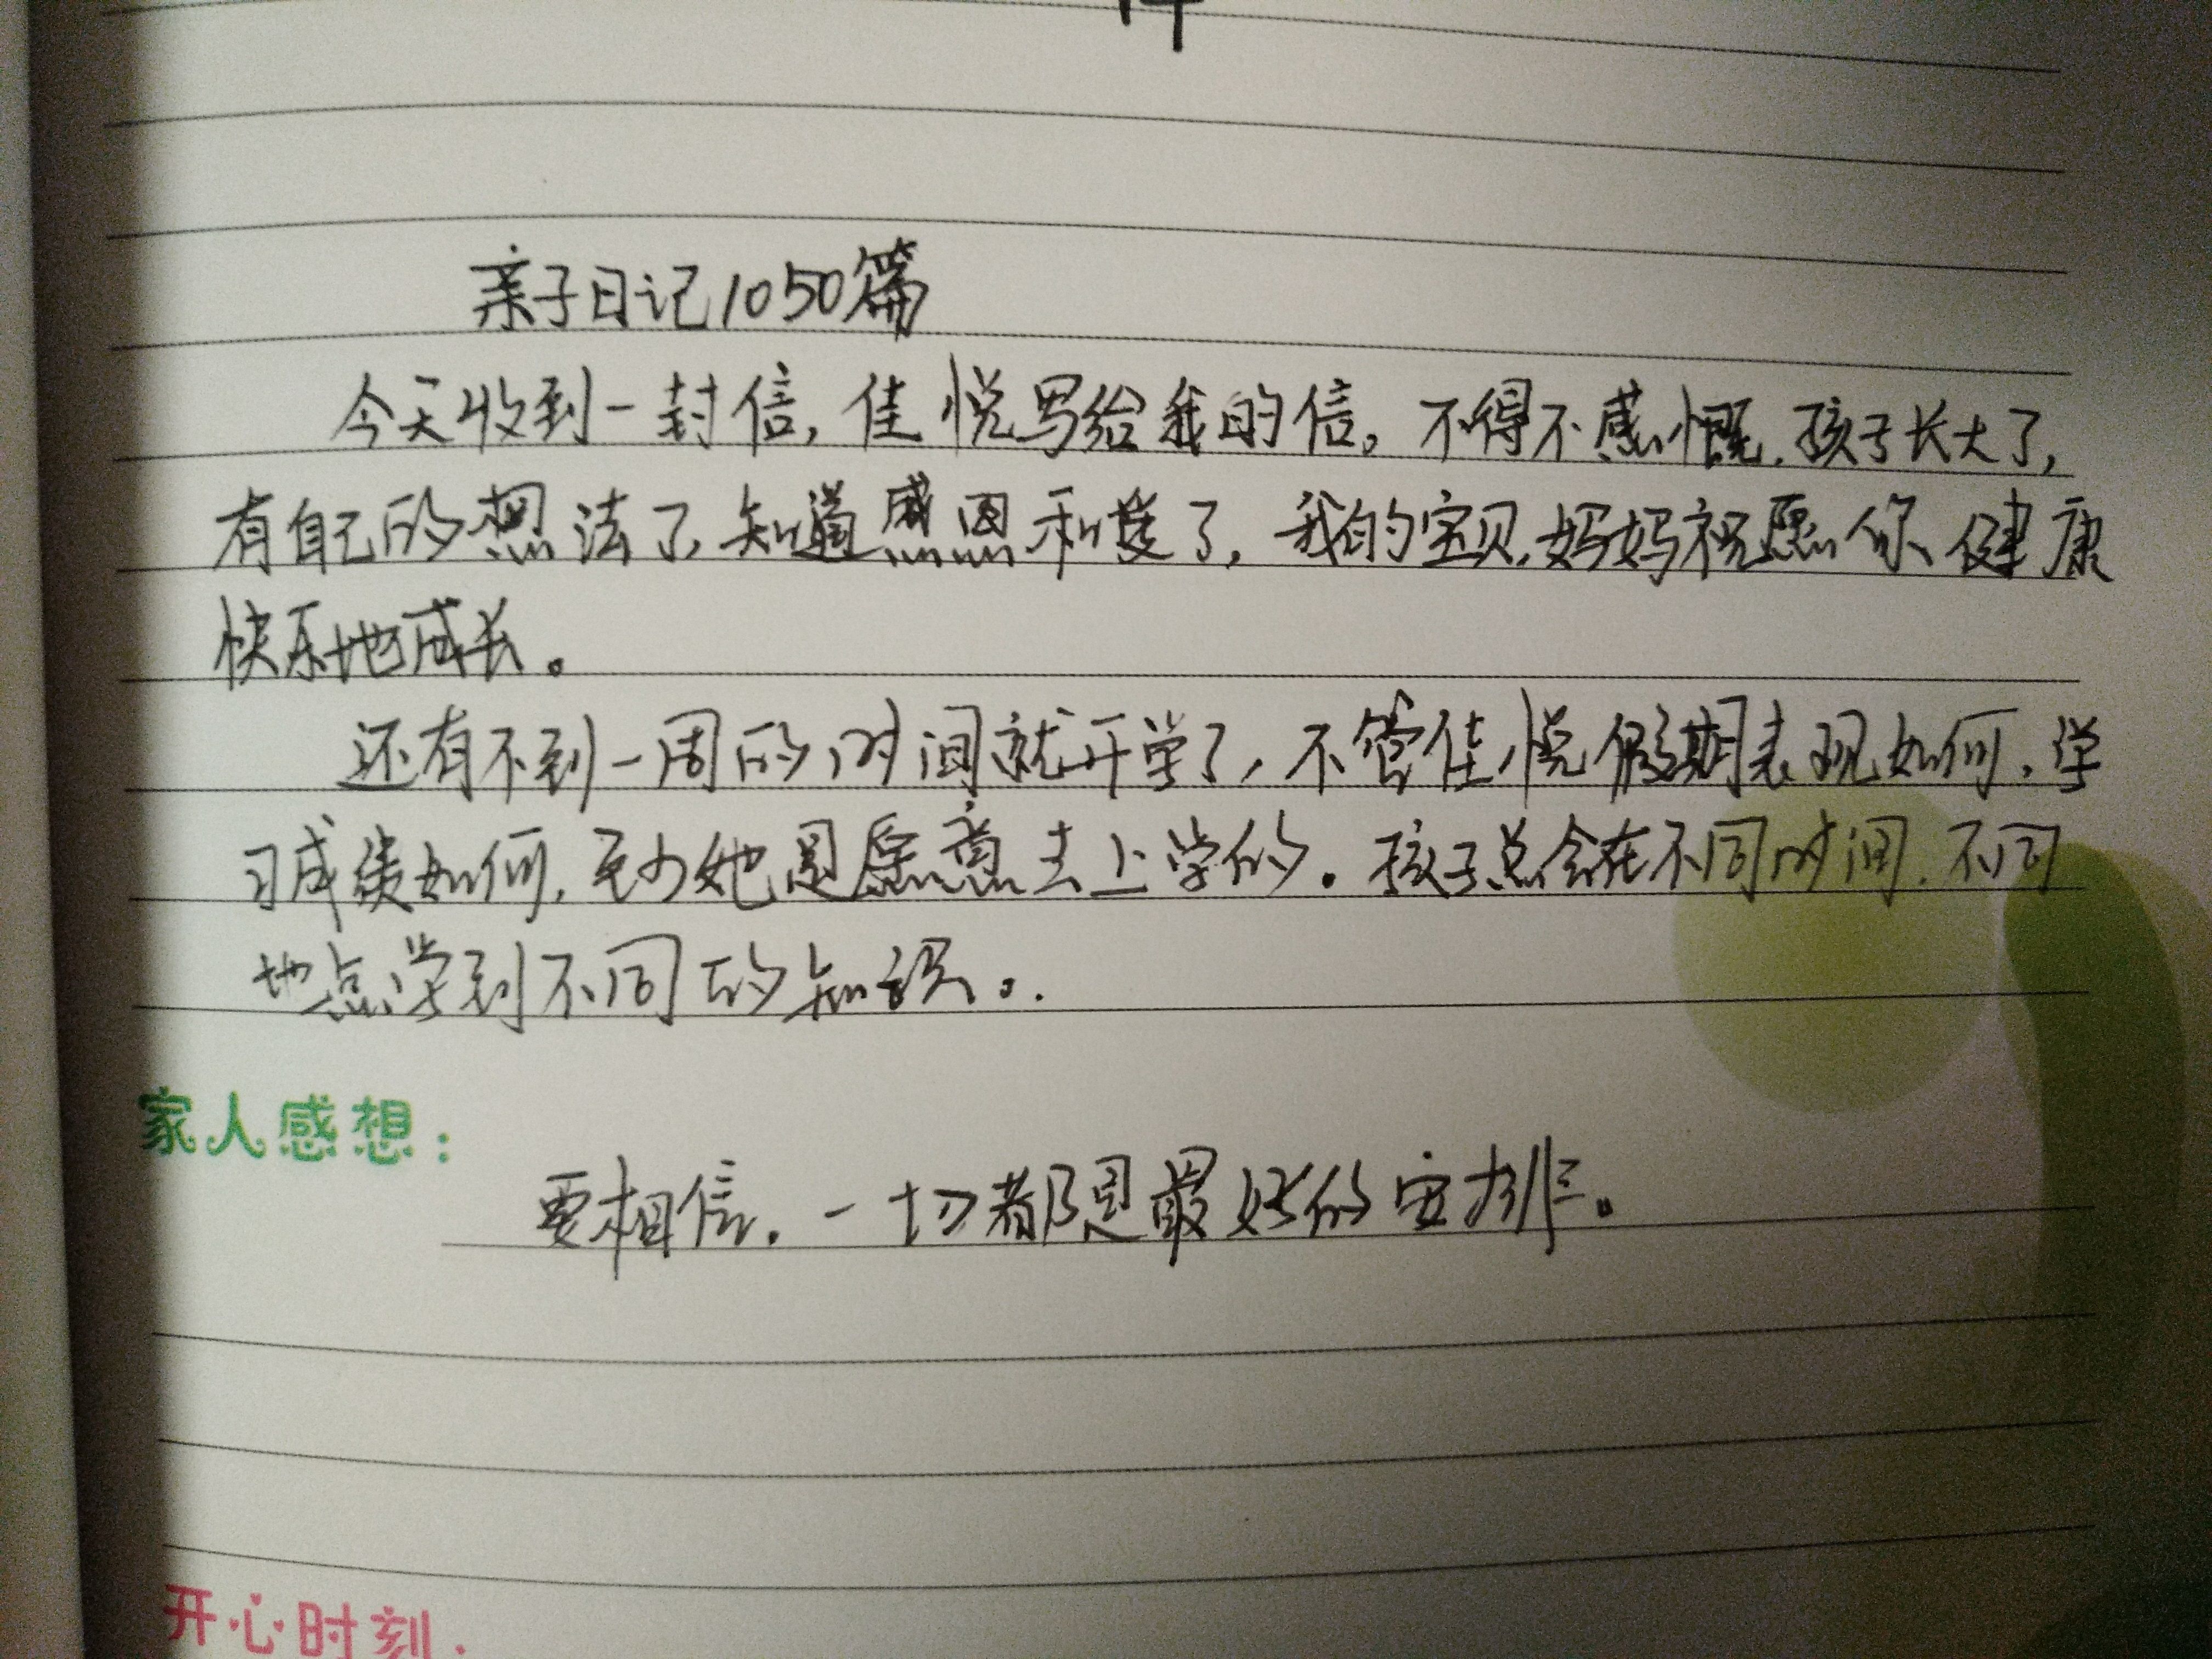 亲子日记1050篇
今天收到一封信,佳悦写给我的信。不得不感慨,孩子长大了,
有自己的想法了,知道感恩和爱了,我的宝贝,妈妈祝愿你健康
快乐地成长。
还有不到一周的时间就开学了,不管佳悦假期表现如何,学
习成绩如何,至少她是愿意去上学的。孩子总会在不同时间,不同
地点学到不同的知识。.
家人感想:
要相信,一切都是最好的安排。
开心时刻